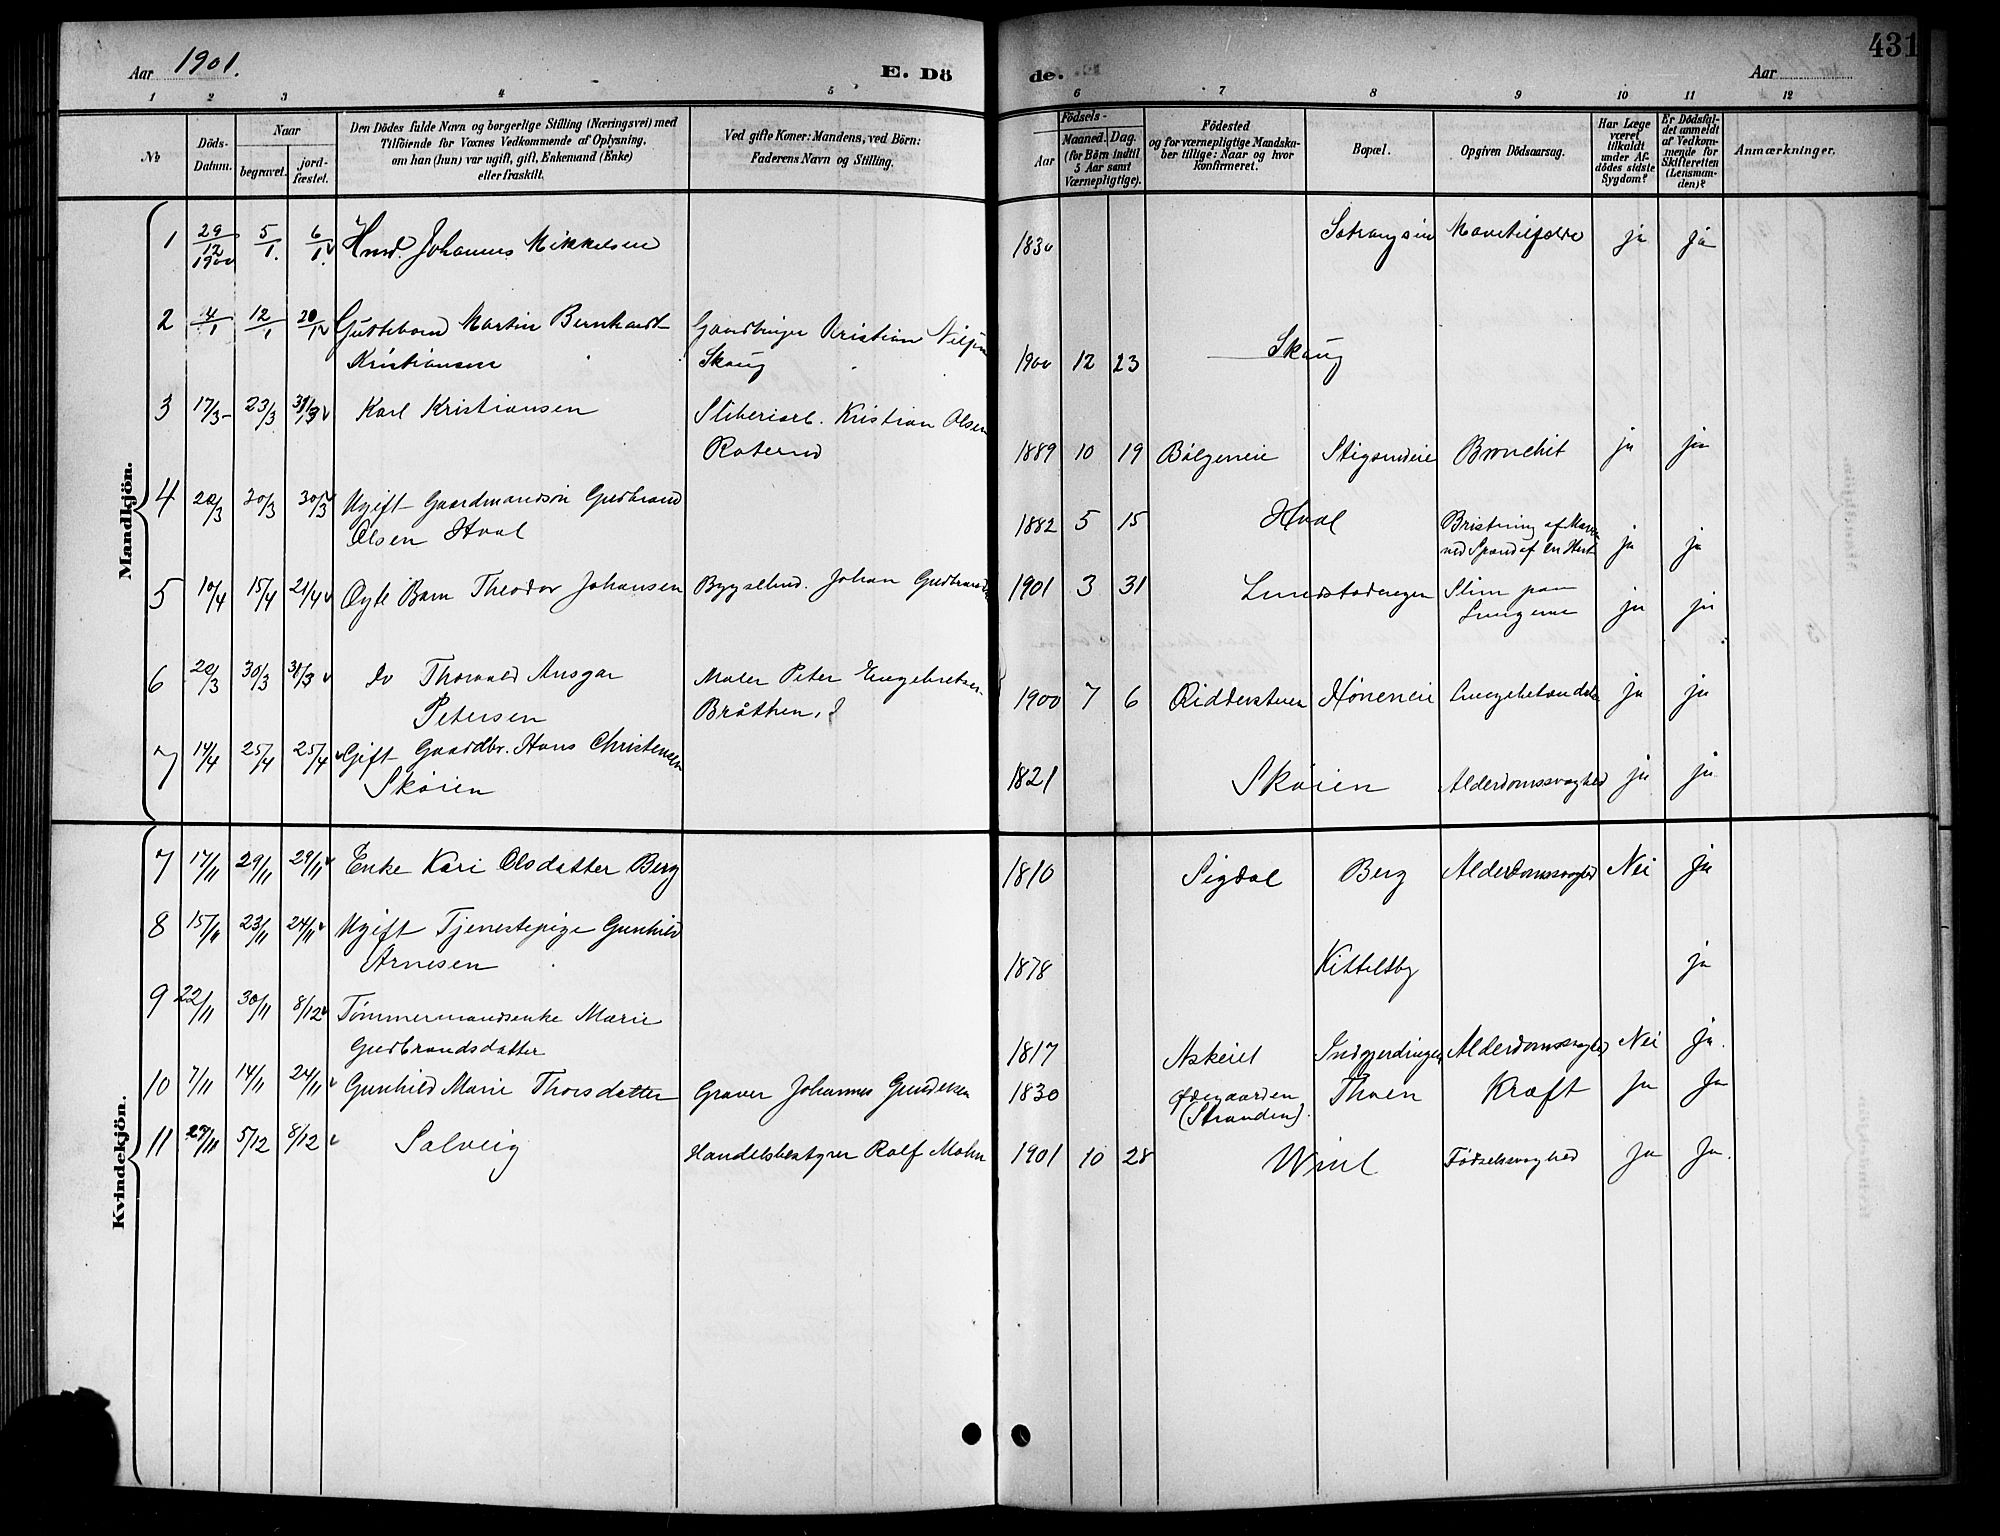 Aar 1901.
E. Dö
de.
Aar
431
1 2 3 4 5 6 7 8 9 10 11 12
№
Döds-
Datum.
Naar
begravet.
jord-
fæstet.
Den Dödes fulde Navn og borgerlige Stilling (Næringsvei) med
Tilföiende for Voxnes Vedkommende af Oplysning,
om han (hun) var ugift, gift, Enkemand (Enke)
eller fraskilt.
Ved gifte Koner: Mandens, ved Börn:
Faderens Navn og Stilling.
Födsels-
Aar
Maaned. Dag.
(for Börn indtil
5 Aar samt
Værnepligtige).
Födested
og for værnepligtige Mandska-
ber tillige: Naar og hvor
konfirmeret.
Bopæl.
Opgiven Dödsaarsag.
Har Læge
været
tilkaldt
under Af-
dödes sidste
Sygdom?
Er Dödsfal-
det anmeldt
af Vedkom-
mende for
Skifteretten
(Lensman-
den)?
Anmærkninger.
Mandkjön.
1 29/12 1900 5/1. 6/1. Johannes Mikkelsen 1830 ja ja
2 4/1 12/1 20/1 Martin Bernhardt Kristian 1900 12 23 Skaug
Kristiansen Skaug
3 17/3 23/3 31/3 Karl Kristiansen Kristian Olsen 1889 10 19 Bronchit ja ja
4 20/3 30/3 30/3 Ugift Gaardmandsön Gudbrand 1882 5 15 Hval Bristning af
Olsen Hval af en Hest ja ja
5 10/4 15/4 21/4 Barn Theodor Johansen Johan 1901 3 31 Slim paa
Lungerne ja ja
6 20/3 30/3 31/3 do Thorvald Ansgar Maler Peter Engebretsen 1900 7 6 Hönen ja ja
Petersen Bråthen
7 14/4 25/4 25/4 Gift Gaardbr. Hans Christensen 1821 Skøien Alderdomssvaghed ja ja
Skøien
Kvindekjön.
7 17/11 29/11 29/11 Enke Kari Olsdatter Berg 1810 Sigdal Berg Alderdomssvaghed Nei ja
8 15/11 23/11 24/11 Ugift Tjenestepige Gunhild 1878 Kittelsby ja
Arnesen
9 22/11 30/11 8/12 Tømmermandsenke Marie 1817 Alderdomssvaghed Nei ja.
Gudbrandsdatter
10 7/11 14/11 24/11 Gunhild Marie Thorsdatter Graver Johannes 1830 (Stranden). Thoen Kræft ja ja
11 29/11 5/12 8/12 Solveig Handelsbestyrer Rolf Mohn 1901 10 28 Födselssvaghed ja ja.